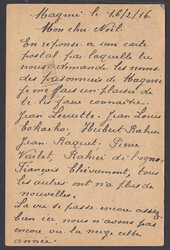 Magnée le 16/2/16
Mon cher Noël
En réponse a une carte
postal par laquelle tu
nous demande les noms
des prisonniers de Magnée
je me fais un plaisir de
te les faire connaitre.
Jean Louis
Hubert
Jean Raquet, Pierre
François Chèvremont, tous
les autres ont n'a plus de
nouvelles.
La vie se passe encore assez
bien ici nous n'avons pas
encore vu la neige cette
année.